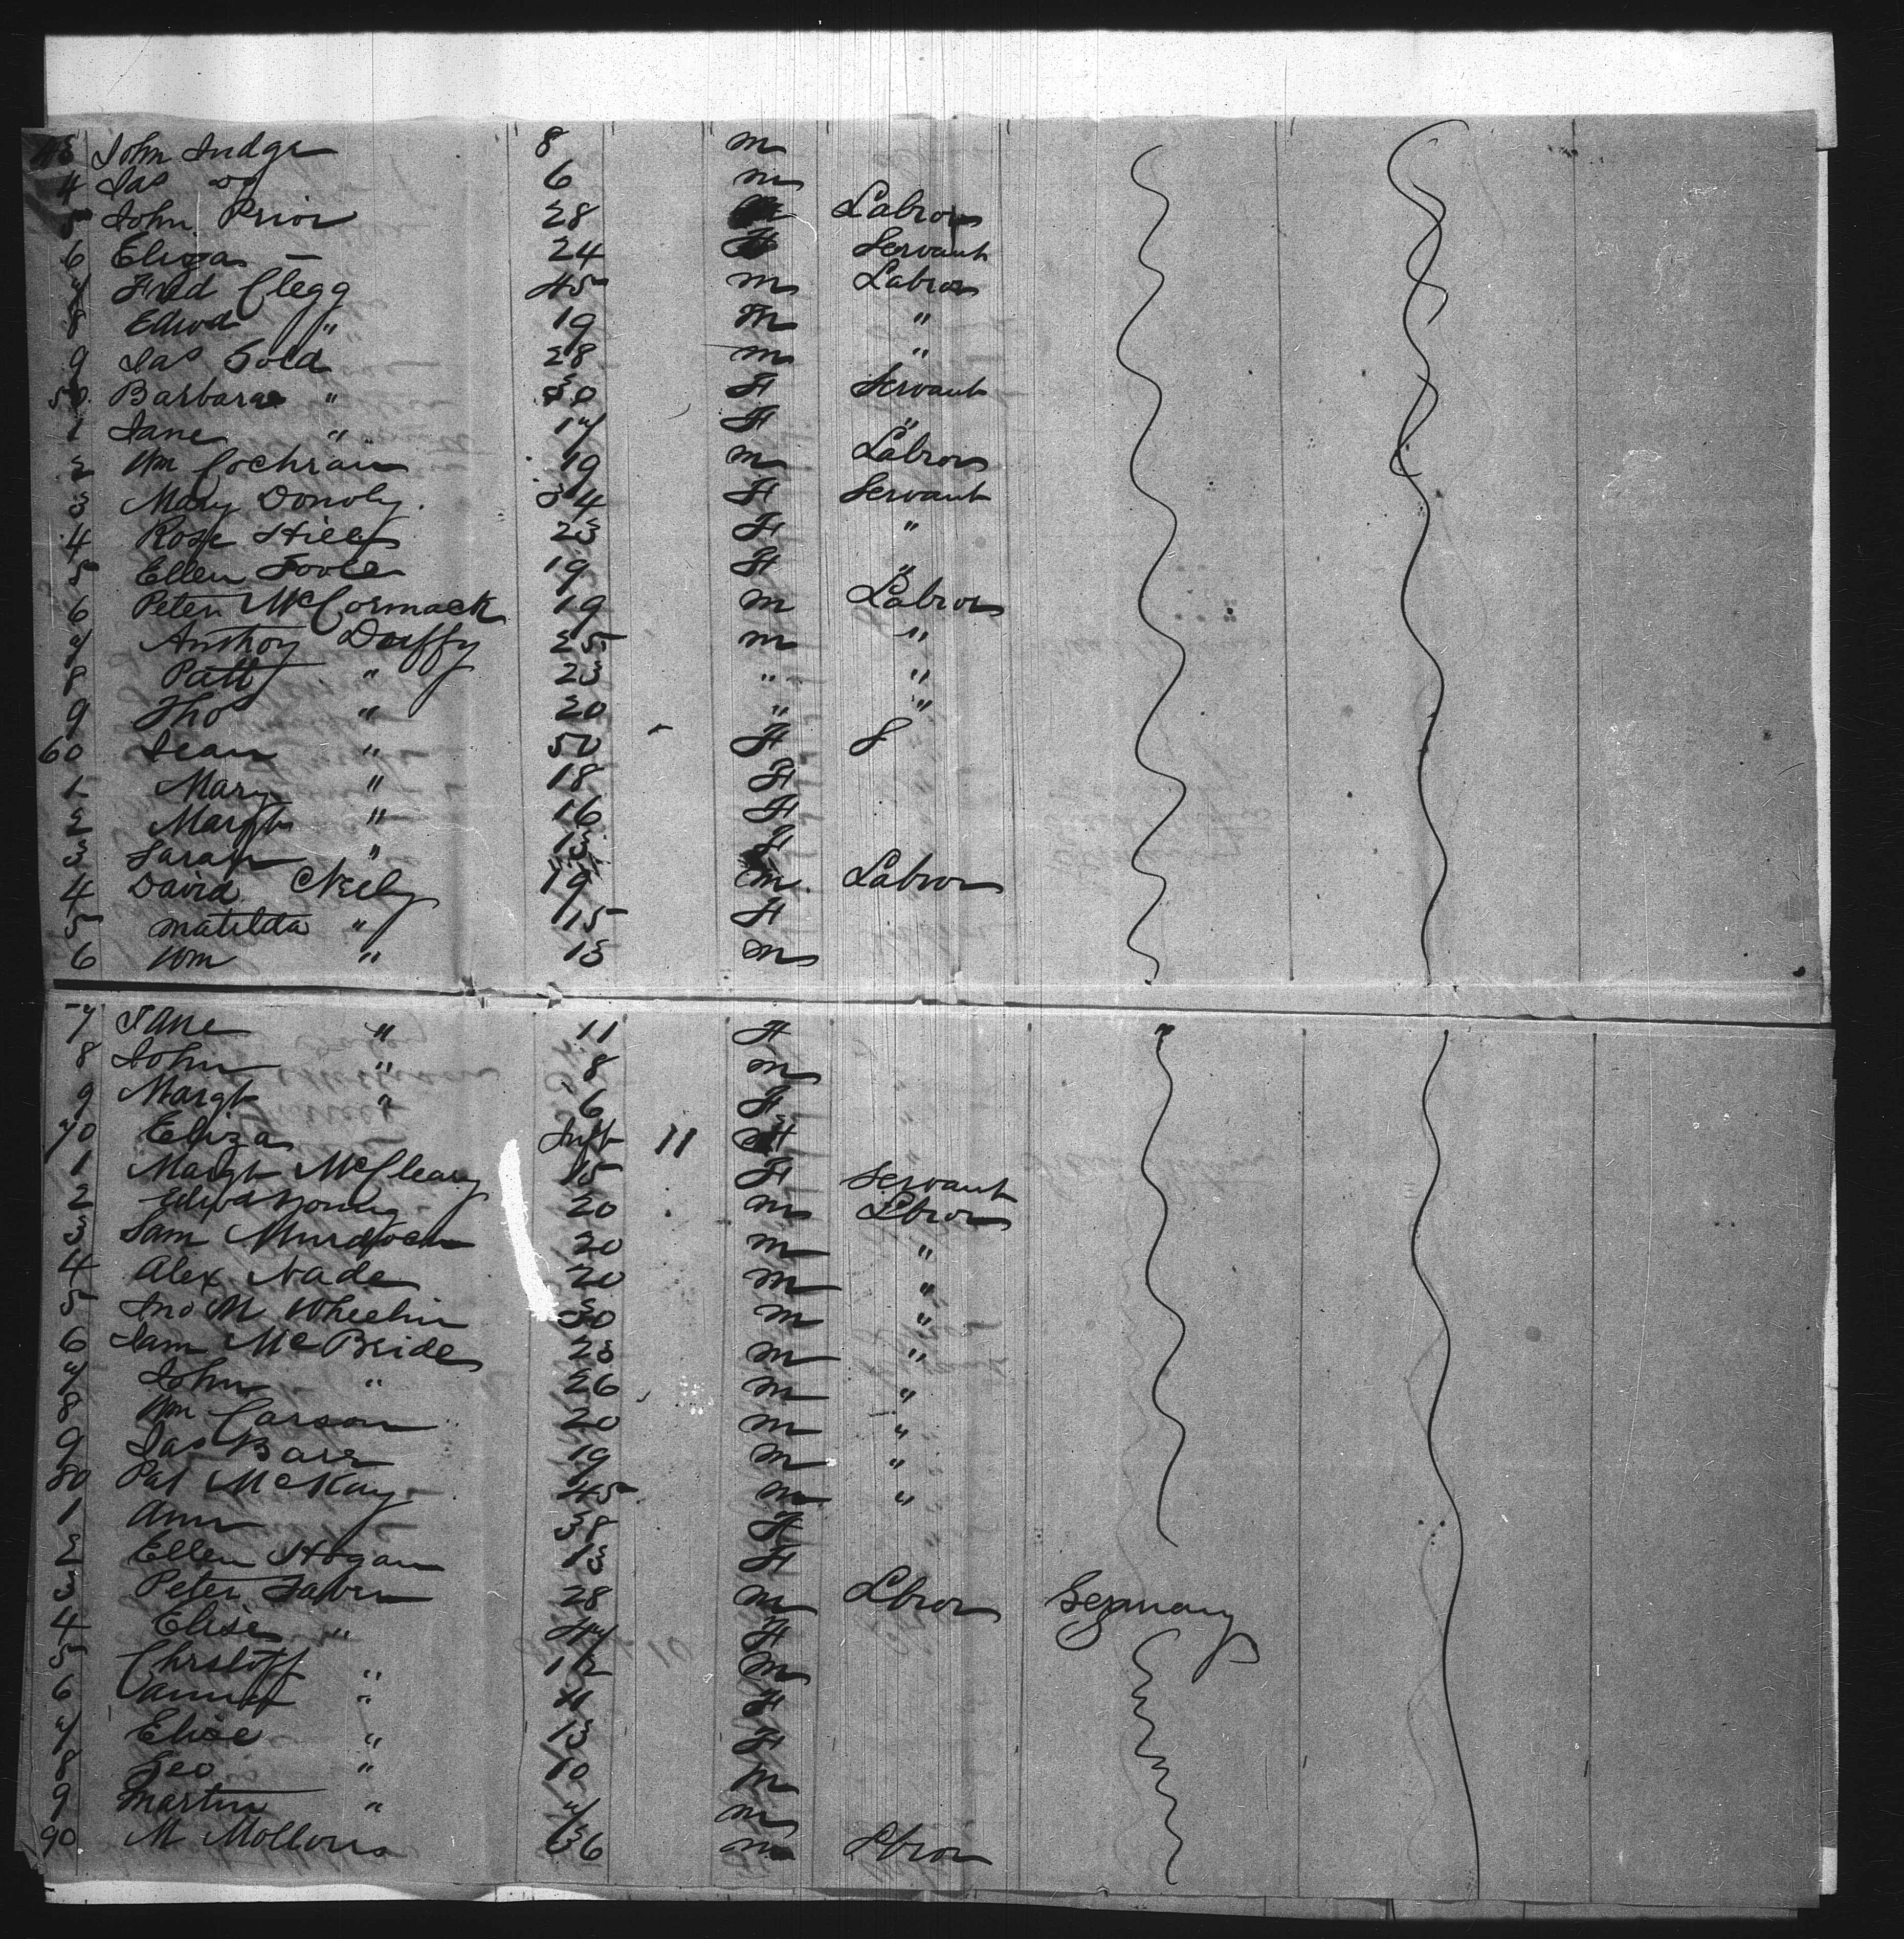 43 John Judge 8 m
4 Jas do 6 m
5 John Prior 28 m Labror
6 Eliza — 24 F Servant
7 Fred Clegg 45 m Labror
8 Edwd " 19 m "
9 Jas Gold 28 m "
50 Barbara " 30 F Servant
1 Jane " 17 F "
2 Wm Cochran 19 m Labror
3 Mary Donoly 34 F Servant
4 Rose Hill 23 F "
5 Ellen Toole 19 F "
6 Peter McCormack 19 m Labror
7 Anthoy Duffy 25 m "
8 Patt " 23 " "
9 Thos " 20 " "
60 Jean " 50 F S
1 Mary " 18 F
2 Margt " 16 F
3 Sarah " 13 F
4 David Neely 19 m Labror
5 Matilda " 15 F
6 Wm " 13 m
7 Jane " 11 F
8 John " 8 m
9 Margt " 6 F
70 Eliza Inft 11 F
1 Margt McCleary 15 F Servant
2 Edwd Young 20 m Lbror
3 Sam Murdoch 20 m "
4 Alex Nade 20 m "
5 Jno M Wheelin 30 m "
6 Sam McBride 23 m "
7 John " 26 m "
8 Wm Carson 20 m "
9 Jas Barr 19 m "
80 Pat McKay 45 m "
1 Ann 38 F
2 Ellen Hogan 13 F
3 Peter 28 m Lbror Germany
4 Elise " 47 F
5 Chrstoff " 12 m
6 " 11 F
7 Elise " 13 F
8 Geo " 10 m
9 Martin " 7 m
90 M 36 m Lbror